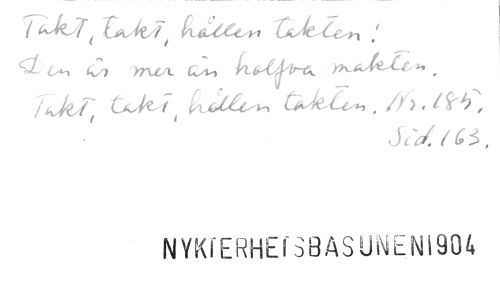 Takt, takt, hållen takten!
Den är mer än halfva makten.
Takt, takt, hållen takten. Nr. 185.
Sid. 163.
NYKTERHETSBASUNEN 1904